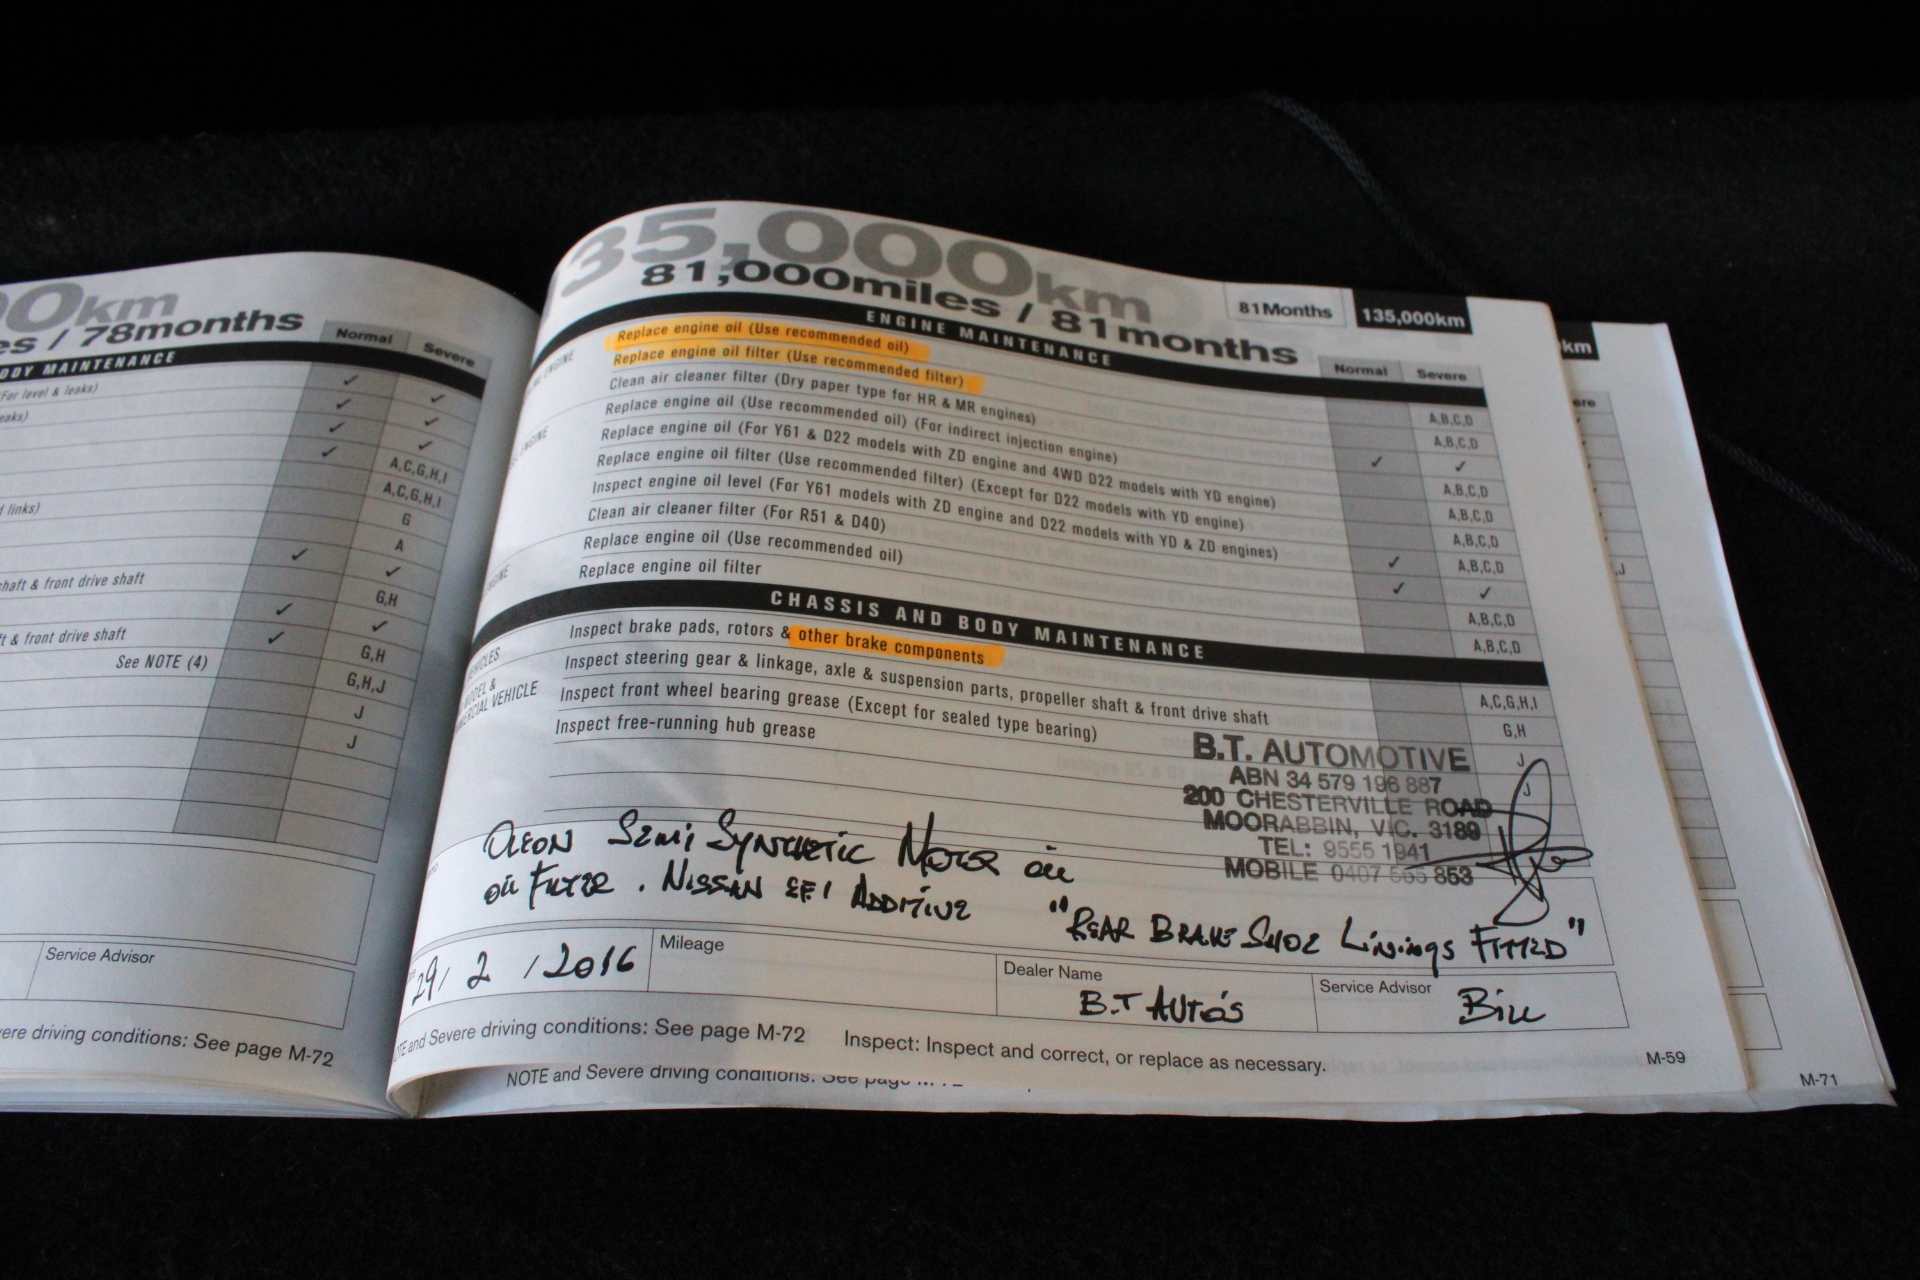 00km
es / 78months
Normal Severe
ODY MAINTENANCE
(For level & leaks)
eaks)
✓ ✓
✓ ✓
✓ ✓
✓ A,C,G,H,I
A,C,G,H,I
links)
G
A
✓ ✓
haft & front drive shaft
G,H
✓ ✓
ft & front drive shaft
✓ G,H
See NOTE (4)
G,H,J
J
J
Service Advisor
vere driving conditions: See page M-72
35,000km
81,000miles / 81months
81Months
135,000km
ENGINE MAINTENANCE
Normal Severe
Replace engine oil (Use recommended oil) A,B,C,D
Replace engine oil filter (Use recommended filter) A,B,C,D
Clean air cleaner filter (Dry paper type for HR & MR engines) ✓ ✓
Replace engine oil (Use recommended oil) (For indirect injection engine) A,B,C,D
Replace engine oil (For Y61 & D22 models with ZD engine and 4WD D22 models with YD engine) A,B,C,D
Replace engine oil filter (Use recommended filter) (Except for D22 models with YD engine) A,B,C,D
Inspect engine oil level (For Y61 models with ZD engine and D22 models with YD & ZD engines) ✓ A,B,C,D
Clean air cleaner filter (For R51 & D40) ✓ ✓
Replace engine oil (Use recommended oil) A,B,C,D
Replace engine oil filter A,B,C,D
CHASSIS AND BODY MAINTENANCE
Inspect brake pads, rotors & other brake components A,C,G,H,I
Inspect steering gear & linkage, axle & suspension parts, propeller shaft & front drive shaft G,H
Inspect front wheel bearing grease (Except for sealed type bearing) J
Inspect free-running hub grease J
EHICLES
MODEL &
RCIAL VEHICLE
B.T. AUTOMOTIVE
ABN 34 579 196 887
200 CHESTERVILLE ROAD
MOORABBIN, VIC. 3189
TEL: 9555 1941
MOBILE 0407 565 853
Semi Synthetic Motor oil
oil Filter . Nissan EFI Additive
"Rear Brake Shoe Linings Fitted"
29/ 2 /2016
Mileage
Dealer Name
B.T Auto's
Service Advisor
Bill
NOTE and Severe driving conditions: See page M-72
Inspect: Inspect and correct, or replace as necessary.
M-59
NOTE and Severe driving conditions: See page
M-71
km